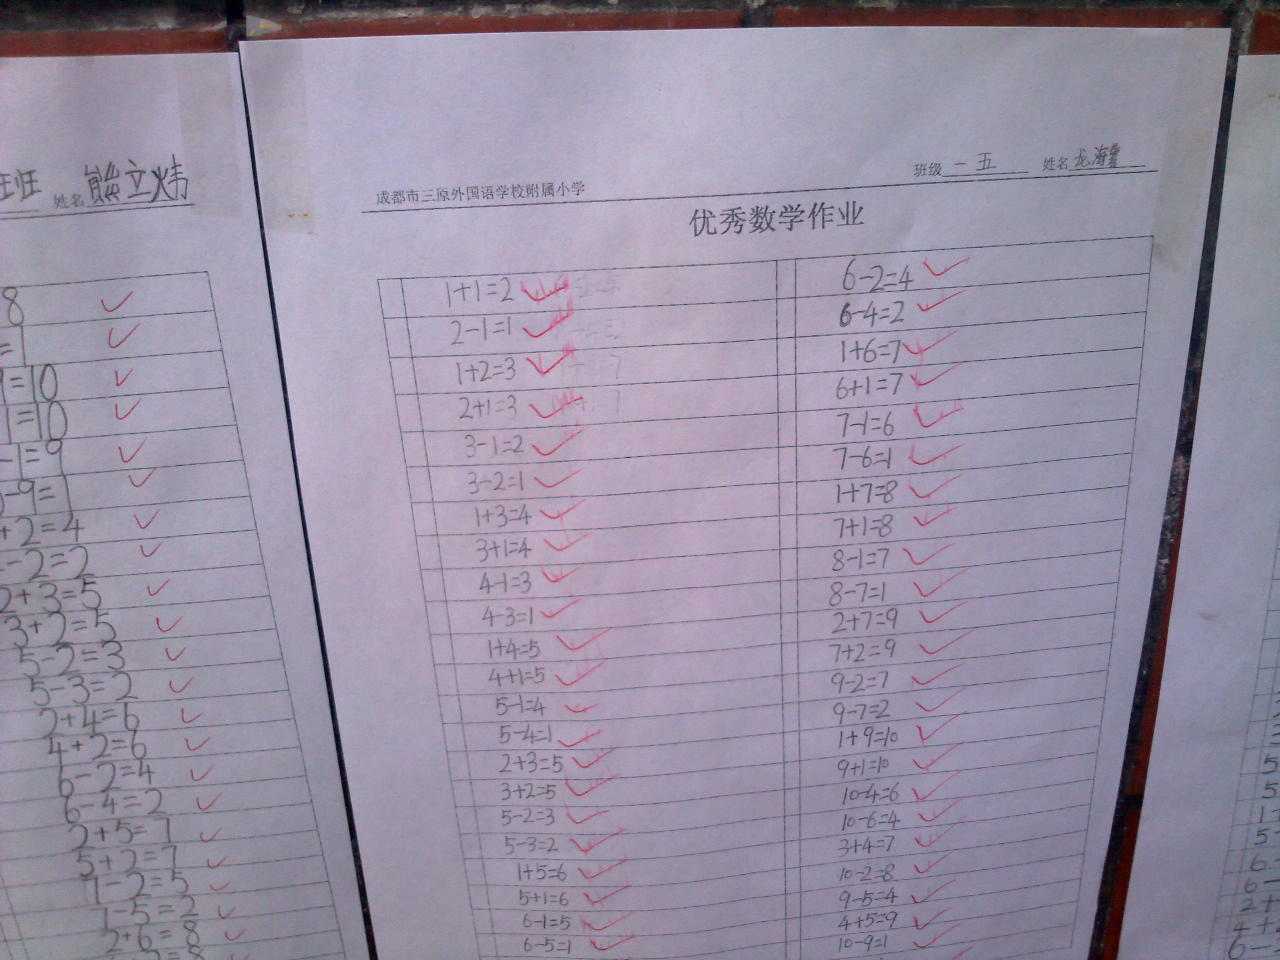 班 姓名 熊立炜
8
=1
=10
1=10
-1=9
-9=1
+2=4
-2=2
2+3=5
3+2=5
5-2=3
5-3=2
2+4=6
4+2=6
6-2=4
6-4=2
2+5=7
5+2=7
7-2=5
7-5=2
2+6=8
成都市三原外国语学校附属小学 班级 一五 姓名 龙海
优秀数学作业
1+1=2
2-1=1
1+2=3
2+1=3
3-1=2
3-2=1
1+3=4
3+1=4
4-1=3
4-3=1
1+4=5
4+1=5
5-1=4
5-4=1
2+3=5
3+2=5
5-2=3
5-3=2
1+5=6
5+1=6
6-1=5
6-5=1
6-2=4
6-4=2
1+6=7
6+1=7
7-1=6
7-6=1
1+7=8
7+1=8
8-1=7
8-7=1
2+7=9
7+2=9
9-2=7
9-7=2
1+9=10
9+1=10
10-4=6
10-6=4
3+4=7
10-2=8
9-5=4
4+5=9
10-9=1
5
5
1+
5
6
6-
2+
4+
6-